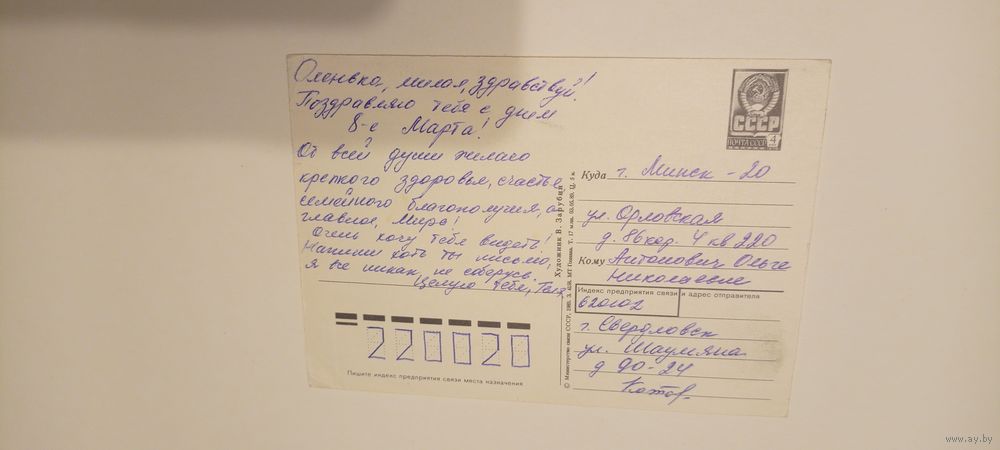 Оленька, милая, здравствуй!
Поздравляю тебя с днем
8-е Марта!
От всей души желаю
крепкого здоровья, счастья
семейного благополучия, а
главное, Мира!
Очень хочу тебя видеть!
Напиши хоть ты письмо,
я все никак не соберусь.
Целую тебя, Тат.
220020
Пишите индекс предприятия связи места назначения
© Министерство связи СССР, 1980. З. МТ Гознака.
Художник В. Зарубин
СССР
ПОЧТА СССР 4
Куда г. Минск - 20
ул. Орловская
д. 86 кор. 4 кв 220
Кому Антонович Ольге
Николаевне
Индекс предприятия связи и адрес отправителя
620102
г. Свердловск
ул. Шаумяна
д 90-24
www.ay.by